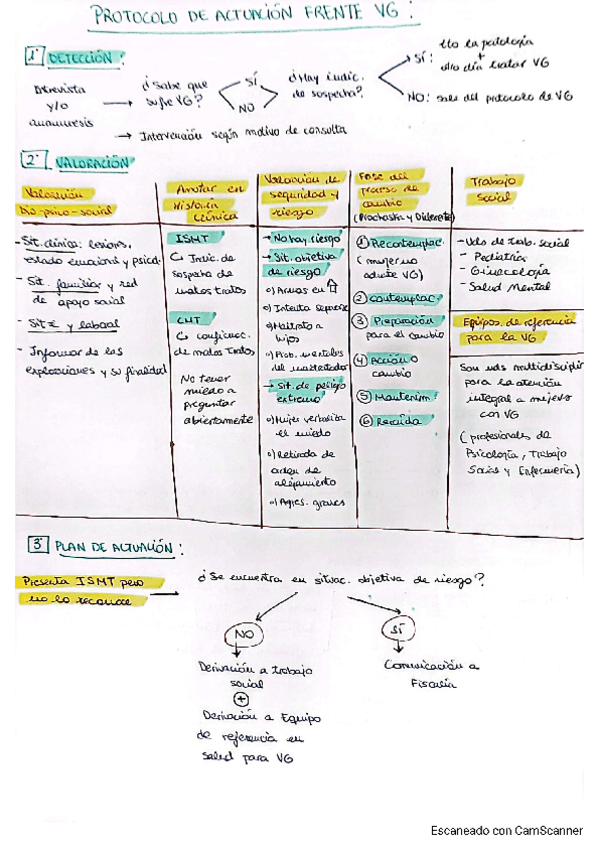 PROTOCOLO DE ACTUACIÓN FRENTE VG:
1º DETECCIÓN:
Entrevista
y/o
anamnesis
¿Sabe que
sufre VG?
SÍ
NO
¿Hay indic.
de sospecha?
SÍ:
tto la patología
+
otro día tratar VG
NO: sale del protocolo de VG
→ Intervención según motivo de consulta
2º VALORACIÓN
Valoración
bio-psico-social
- Sit. clínica: lesions,
estado emocional y psicol.
- Sit. familiar y red
de apoyo social
- Sit € y laboral
- Informar de las
exploraciones y su finalidad
Anotar en
Historia
Clínica
ISMT
Indic. de
sospecha de
malos tratos
CMT
confirmac.
de malos tratos
No tener
miedo a
preguntar
abiertamente
Valoración de
seguridad y
riesgo
→ No hay riesgo
→ Sit. objetiva
de riesgo
o) Armas en
o) Intenta separarse
o) Maltrato a
hijos
o) Prob. mentales
del maltratador
→ Sit. de peligro
extremo
o) Mujer verbaliza
el miedo
o) Retirada de
orden de
alejamiento
o) Agres. graves
Fase del
proceso de
cambio
(Prochaska y Diclemente)
1 Precontemplac.
(mujer no
admite VG)
2 Contemplac.
3 Preparación
para el cambio
4 Acción o
cambio
5 Mantenim.
6 Recaída
Trabajo
Social
- Uds de trab. social
- Pediatría
- Ginecología
- Salud Mental
Equipos de referencia
para la VG
Son uds multidisciplin
para la atención
integral a mujeres
con VG
(profesionales de
Psicología, Trabajo
Social y Enfermería)
3º PLAN DE ACTUACIÓN:
Presenta ISMT pero
no lo reconoce
¿Se encuentra en situac. objetiva de riesgo?
NO
SÍ
Derivación a trabajo
social
+
Derivación a Equipo
de referencia en
salud para VG
Comunicación a
Fiscalía
Escaneado con CamScanner